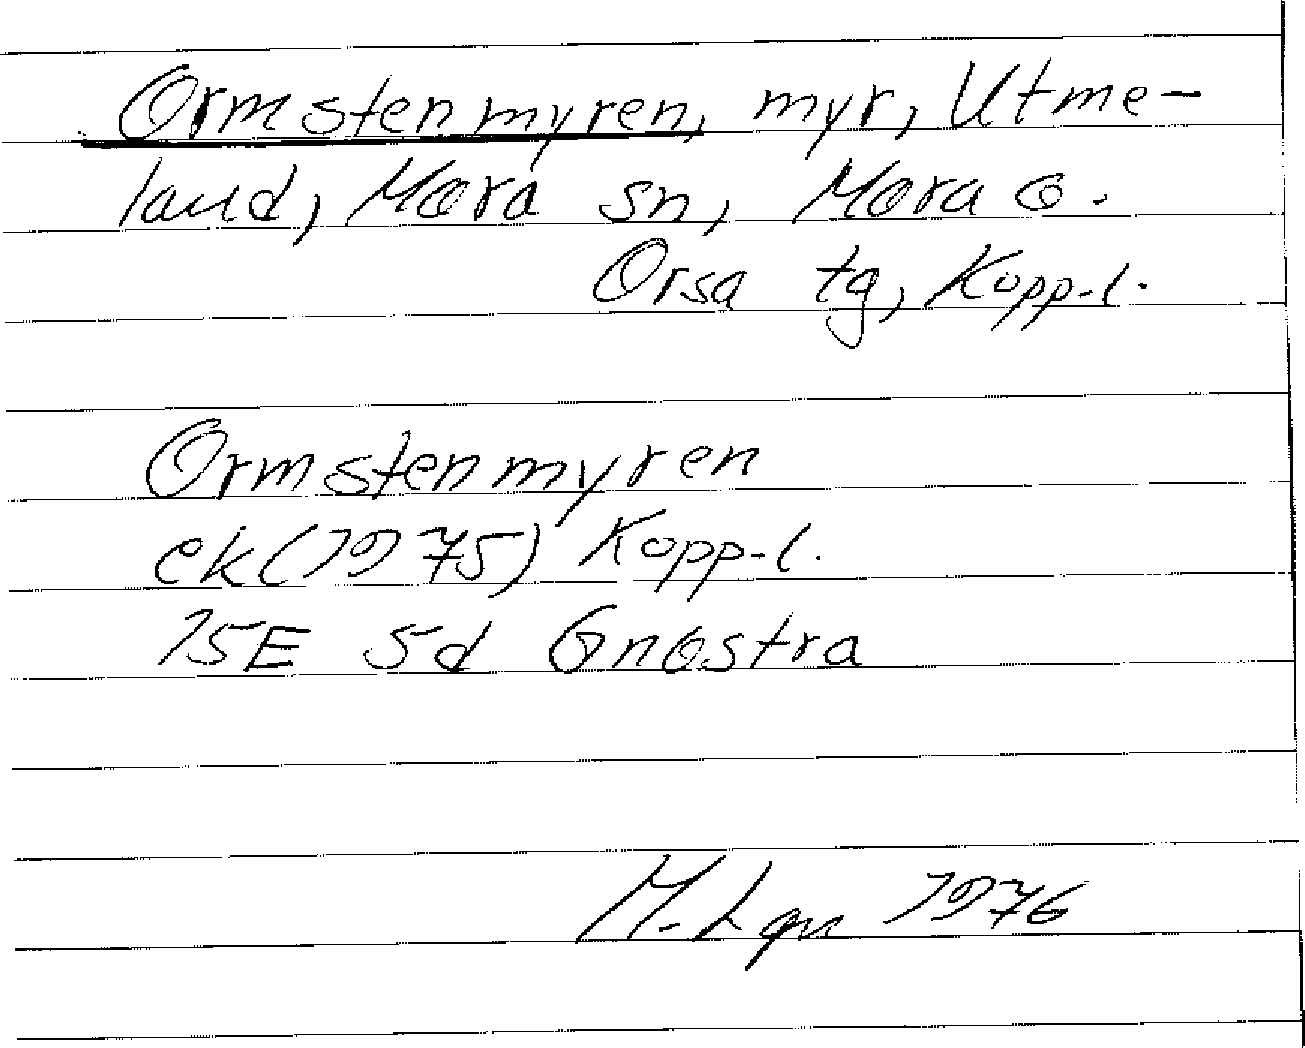 Ormstenmyren, myr, Utme-
land, Mora sn, Mora o.
Orsa tg, Kopp-l.
Ormstenmyren
ek(1975) Kopp-l.
15E 5d Gnostra
M. Lgn 1976